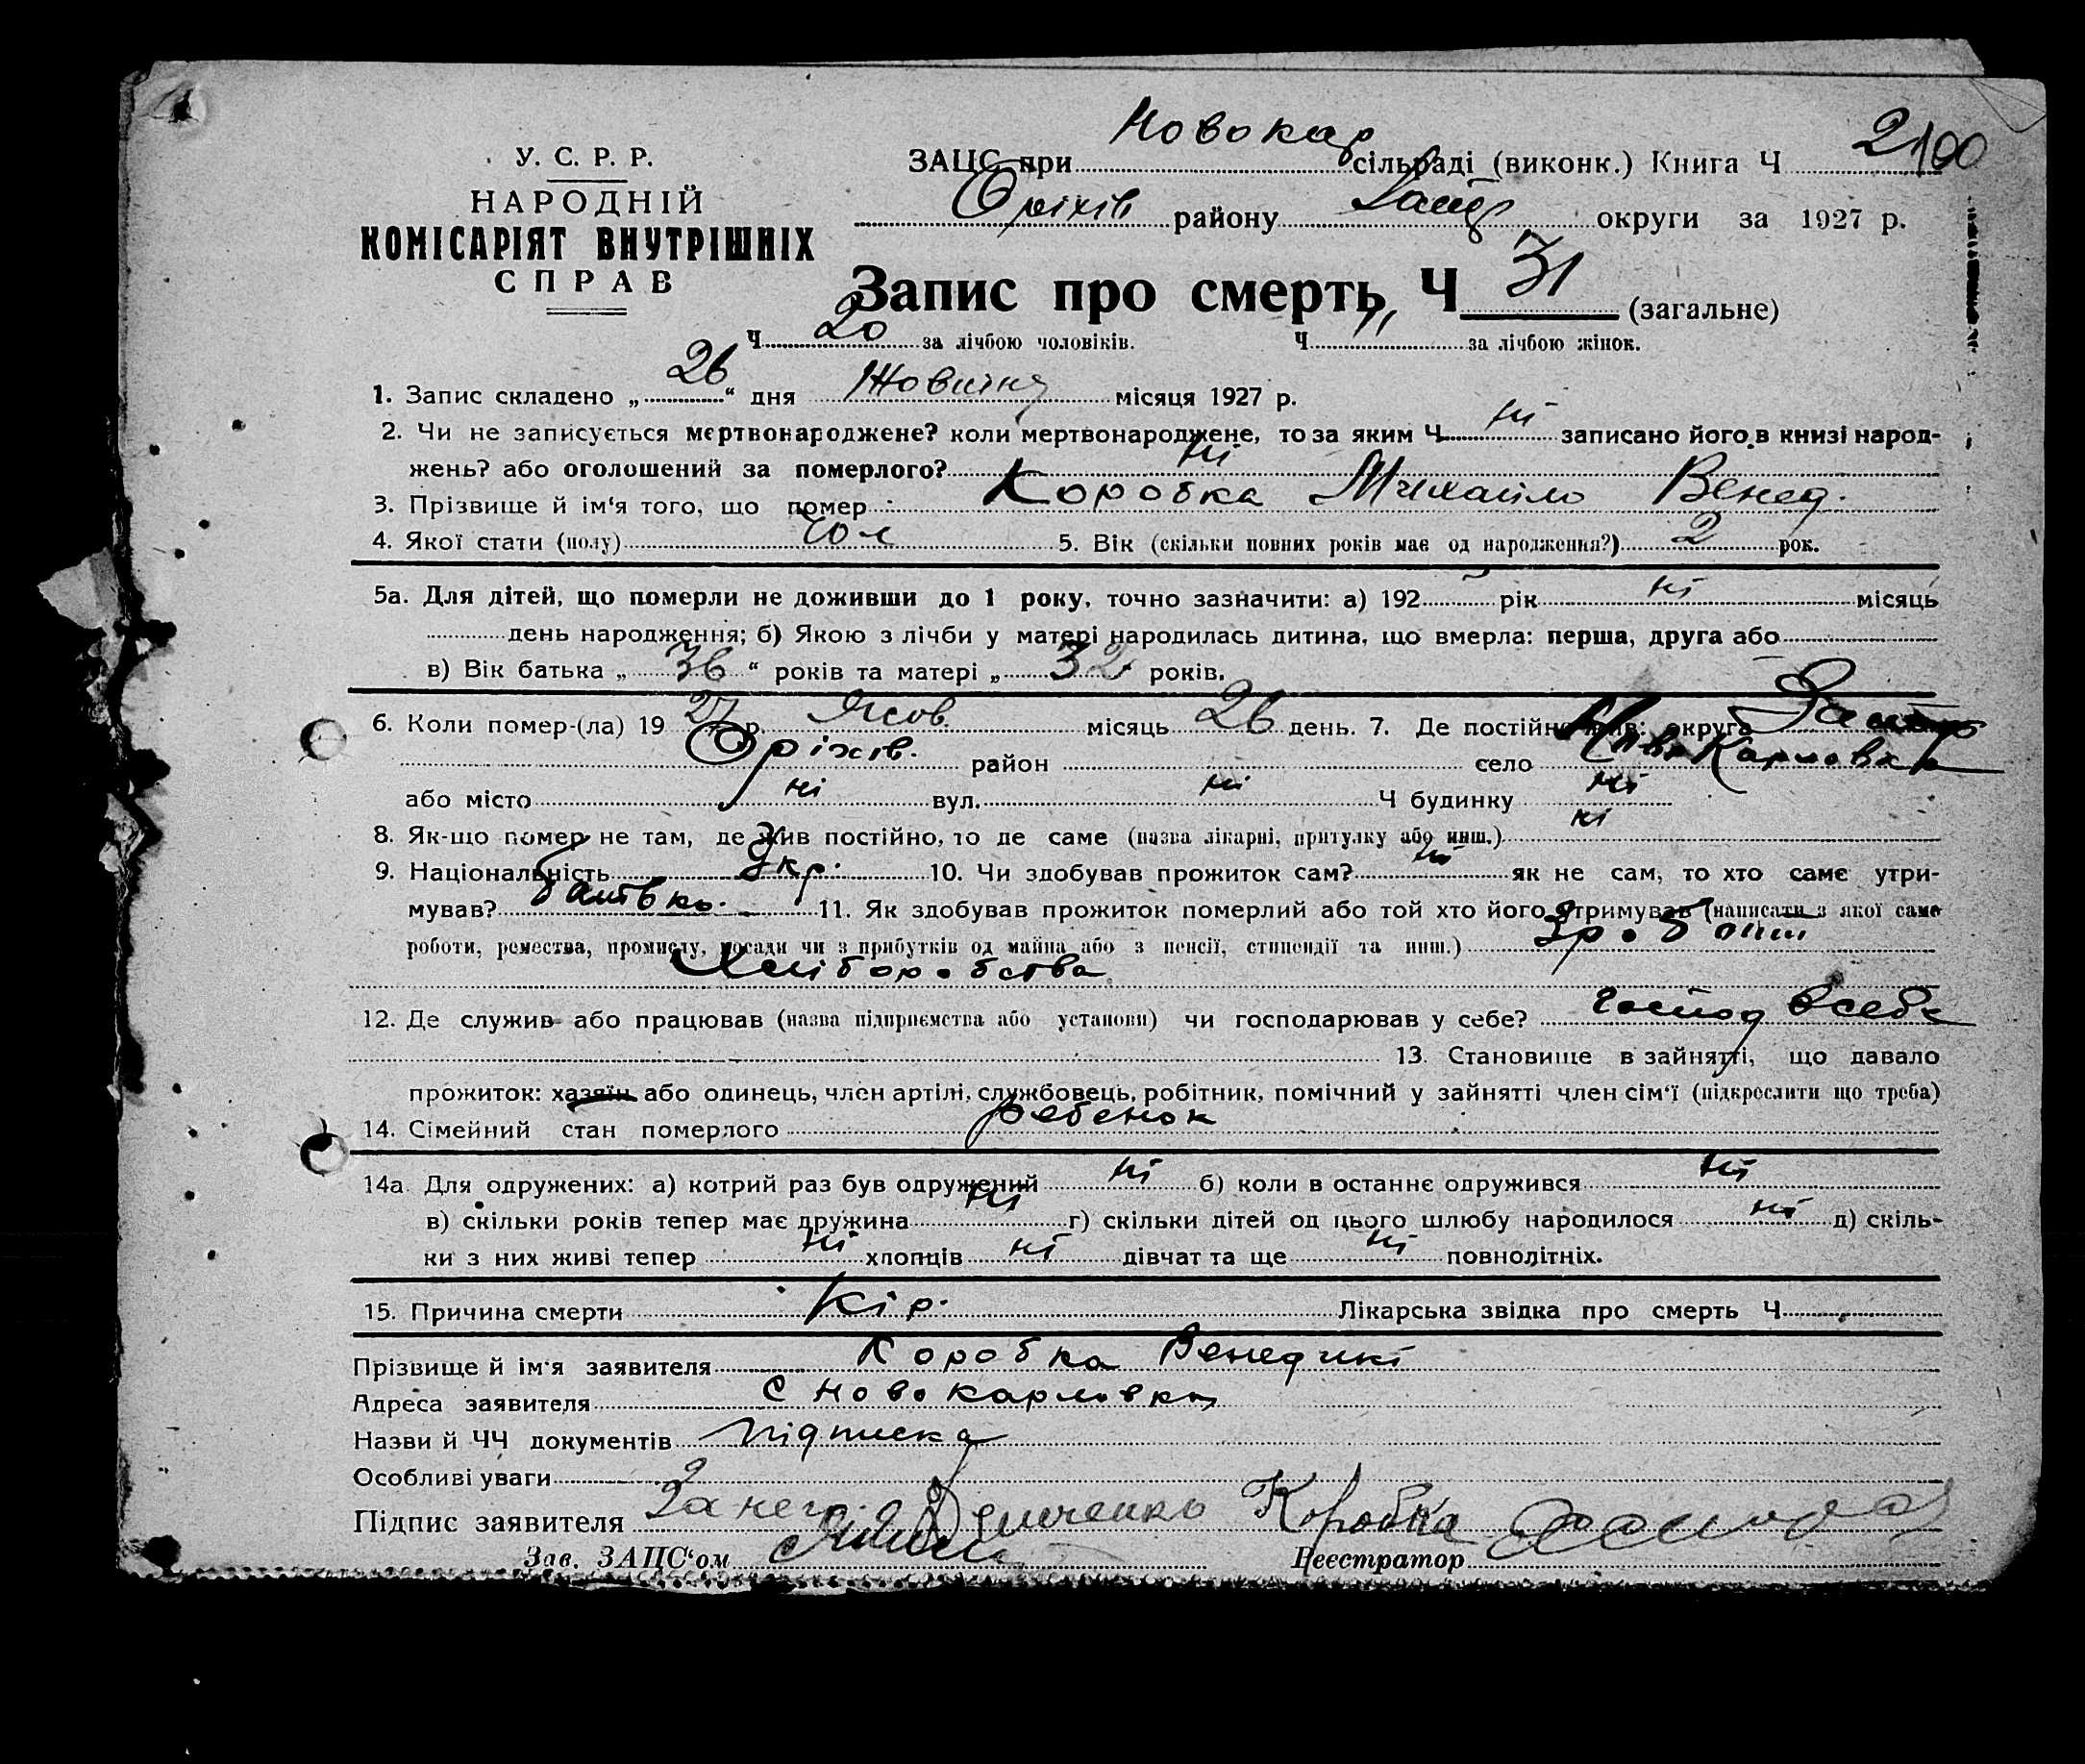 У. С. Р. Р.
НАРОДНІЙ
КОМІСАРІЯТ ВНУТРІШНІХ
СПРАВ
ЗАЦС при Новокар сільраді (виконк.) Книга Ч 2
Оріхів району Запор округи за 1927 р.
Запис про смерть, Ч 31 (загальне)
Ч 20 за лічбою чоловіків. Ч 11 за лічбою жінок.
1. Запис складено „ 26 “ дня Жовтня місяця 1927 р.
2. Чи не записується мертвонароджене? коли мертвонароджене, то за яким Ч ні записано його в книзі народ-
жень? або оголошений за померлого? ні
3. Прізвище й ім‘я того, що помер Коробка Михайло Венед.
4. Якої стати (полу) чол 5. Вік (скільки повних років має од народження?) 2 рок.
5а. Для дітей, що померли не доживши до 1 року, точно зазначити: а) 192 рік ні місяць
день народження; б) Якою з лічби у матері народилась дитина, що вмерла: перша, друга або
в) Вік батька „ 36 “ років та матері „ 32 років.
6. Коли помер-(ла) 19 27 р. Жов. місяць 26 день. 7. Де постійно жив: округа Запор
Оріхів. район село Ново Карловка
або місто ні вул. ні Ч будинку ні
8. Як-що помер не там, де жив постійно, то де саме (назва лікарні, притулку або инш.) ні
9. Національність Укр. 10. Чи здобував прожиток сам? ні як не сам, то хто саме утри-
мував? батько. 11. Як здобував прожиток померлий або той хто його утримував (написати з якої саме
роботи, ремества, промислу, посади чи з прибутків од майна або з пенсії, стипендії та инш.) Зроботи
Хліборобства
12. Де служив або працював (назва підприємства або установи) чи господарював у себе? господ всебе
13. Становище в зайнятті, що давало
прожиток: хазяїн або одинець, член артілі, службовець, робітник, помічний у зайнятті член сім‘ї (підкреслити що треба)
14. Сімейний стан померлого ребенок
14а. Для одружених: а) котрий раз був одружений ні б) коли в останнє одружився ні
в) скільки років тепер має дружина ні г) скільки дітей од цього шлюбу народилося ні д) скіль-
ки з них живі тепер ні хлопців ні дівчат та ще ні повнолітніх.
15. Причина смерти Кір. Лікарська звідка про смерть Ч
Прізвище й ім‘я заявителя Коробка Венедикт
Адреса заявителя С Новокарловка
Назви й ЧЧ документів підписка
Особливі уваги
Підпис заявителя За него Демченко Коробка
Зав. ЗАЦС‘ом Реєстратор